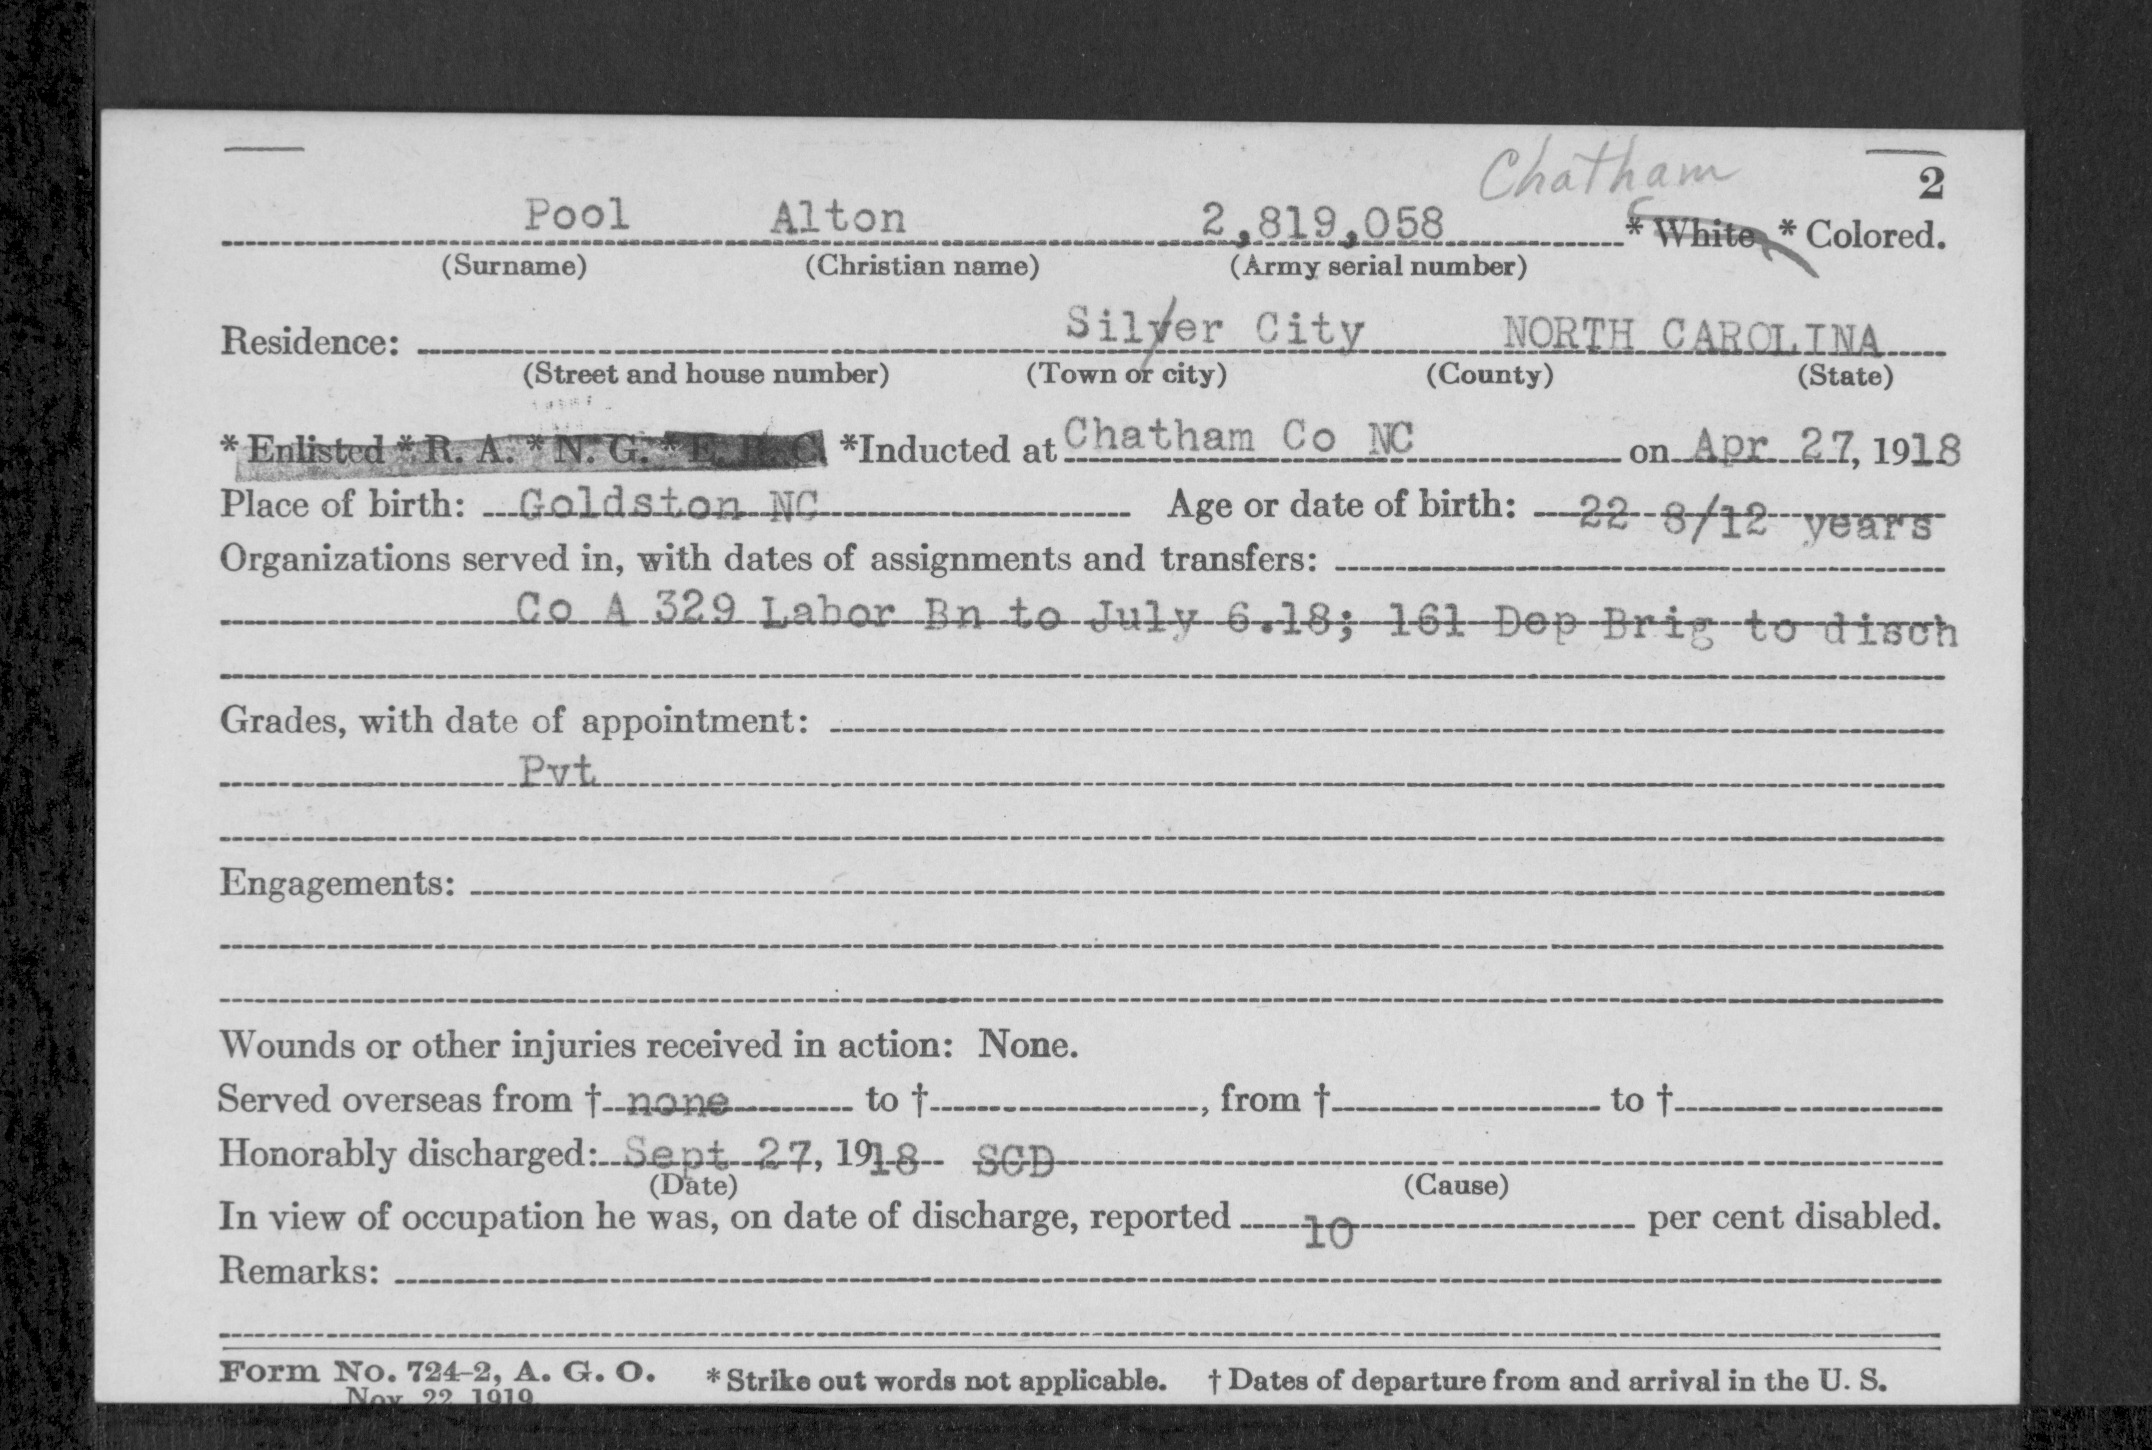 Chatham
2
Pool Alton 2,819,058 * White * Colored.
(Surname) (Christian name) (Army serial number)
Residence: Silver City NORTH CAROLINA
(Street and house number) (Town or city) (County) (State)
* Enlisted * R. A. * N. G. * E. R. C. *Inducted at Chatham Co NC on Apr 27, 1918
Place of birth: Goldston NC Age or date of birth: 22 8/12 years
Organizations served in, with dates of assignments and transfers:
Co A 329 Labor Bn to July 6.18; 161 Dep Brig to disch
Grades, with date of appointment:
Pvt
Engagements:
Wounds or other injuries received in action: None.
Served overseas from † none to †, from † to †
Honorably discharged: Sept 27, 1918 SCD
(Date) (Cause)
In view of occupation he was, on date of discharge, reported 10 per cent disabled.
Remarks:
Form No. 724-2, A. G. O. * Strike out words not applicable. † Dates of departure from and arrival in the U. S.
Nov. 22, 1919.